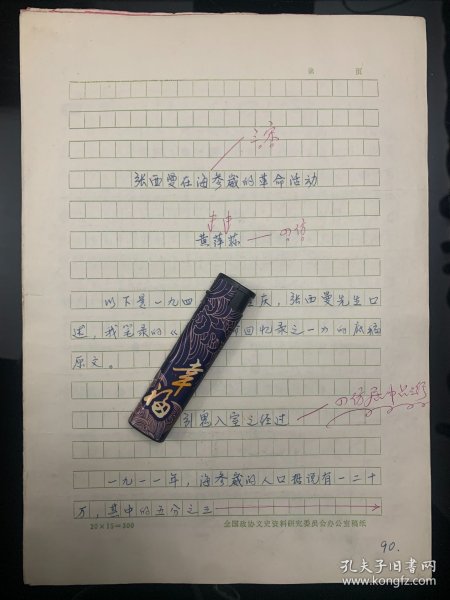 第 页
三宋
张西曼在海参崴的革命活动
黄萍荪
四仿
以下是一九四 庆，张西曼先生口
述，我笔录的《 回忆录之一》的底稿
原文。
幸福
引鬼入室之经过
四仿居中占三行
一九一一年，海参崴的人口据说有一二十
万，其中的五分之三
20×15=300
全国政协文史资料研究委员会办公室稿纸
90.
孔夫子旧书网
kongfz.com